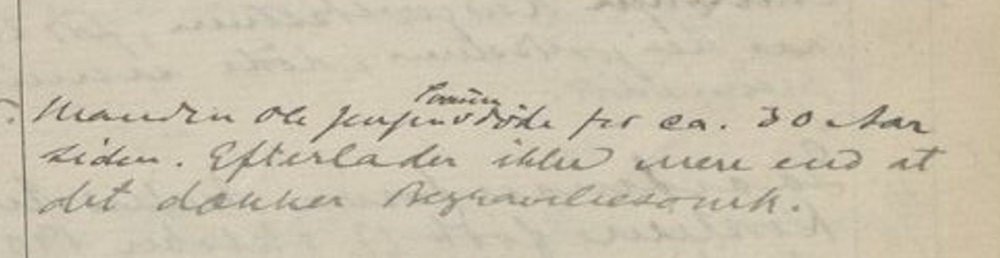 Manden Ole Jensen døde for ca. 30 Aar
siden. Efterlader ikke mere end at
det dækker Begravelsesomk.